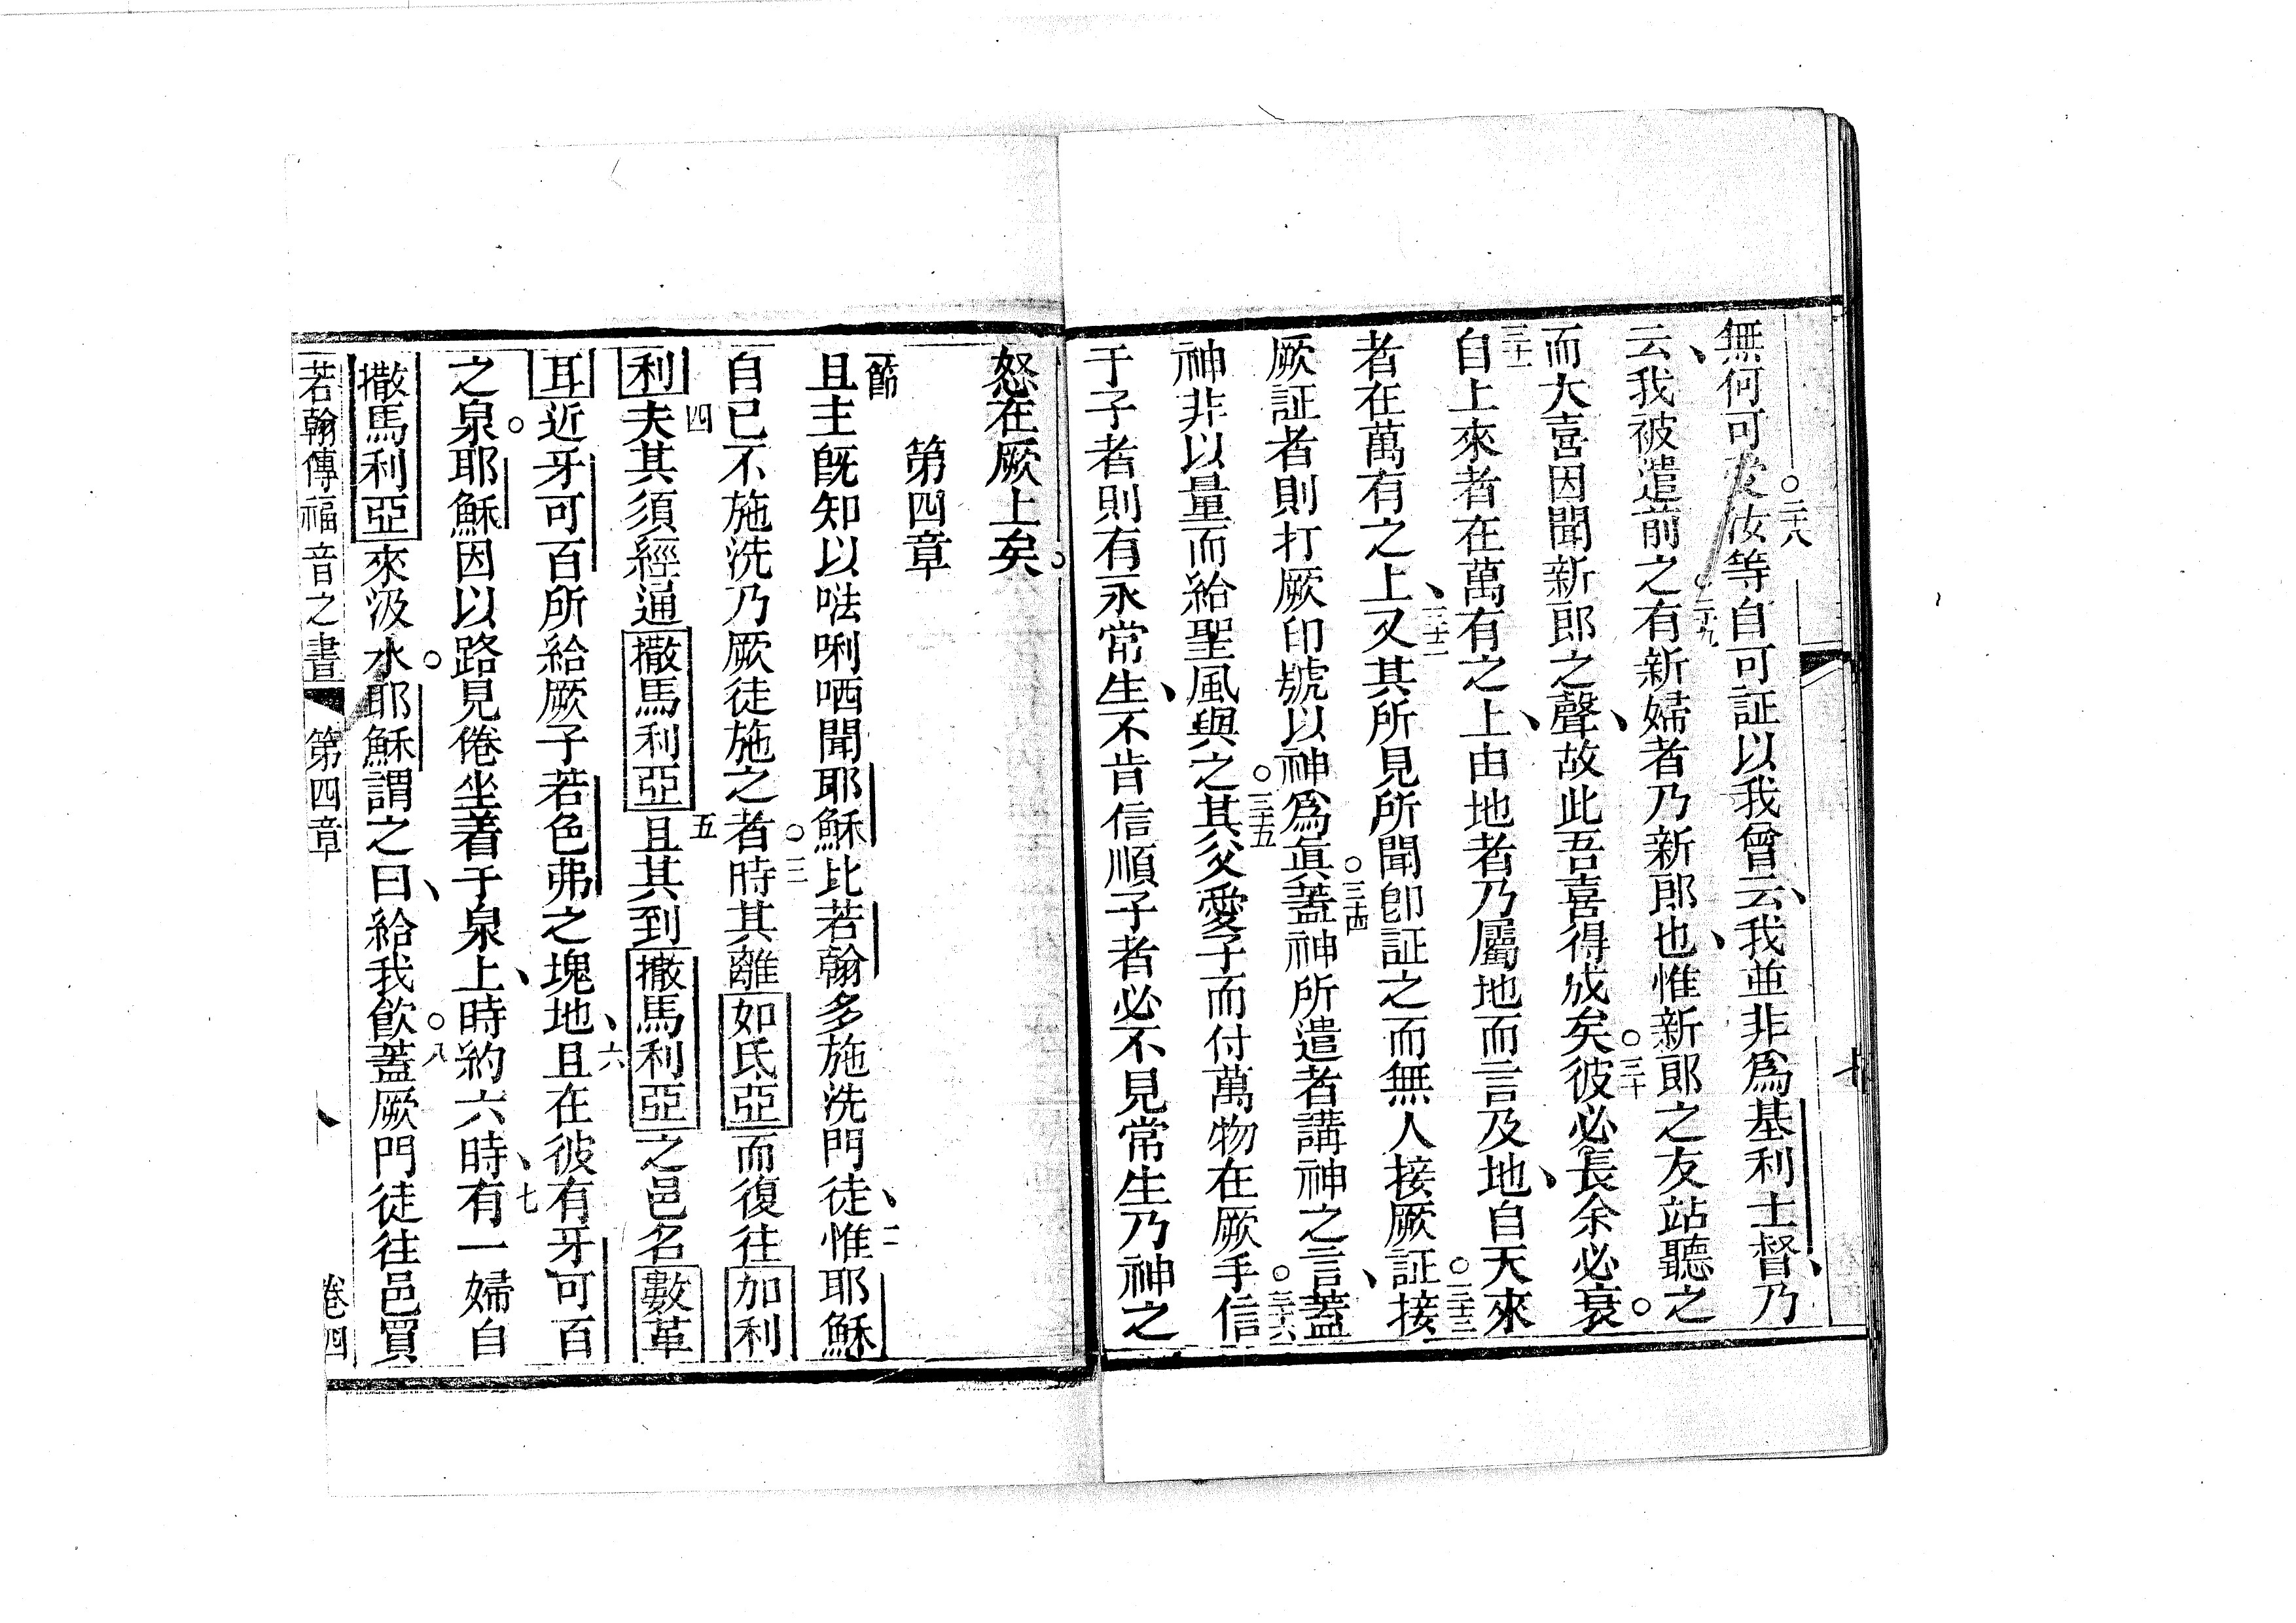 無何可受汝等自可証以我曾云我並非爲基利士督乃
二十八
云我被遣前之有新婦者乃新郎也惟新郎之友站聽之
二十九
而大喜因聞新郎之聲故此吾喜得成矣彼必長余必衰
三十
三十一
自上來者在萬有之上由地者乃屬地而言及地自天來
者在萬有之上又其所見所聞卽証之而無人接厥証接
三十二
三十三
厥証者則打厥印號以神爲眞蓋神所遣者講神之言蓋
三十四
神非以量而給聖風與之其父愛子而付萬物在厥手信
三十五
三十六
于子者則有永常生不肯信順子者必不見常生乃神之
怒在厥上矣
第四章
一節
且主旣知以𠵽唎哂聞耶穌比若翰多施洗門徒惟耶穌
二
自己不施洗乃厥徒施之者時其離如氐亞而復往加利
三
利夫其須經通撒馬利亞且其到撒馬利亞之邑名數革
四
五
耳近牙可百所給厥子若色弗之塊地且在彼有牙可百
六
之泉耶穌因以路見倦坐着于泉上時約六時有一婦自
七
撒馬利亞來汲水耶穌謂之曰給我飮蓋厥門徒往邑買
八
若翰傳福音之書 第四章 卷四